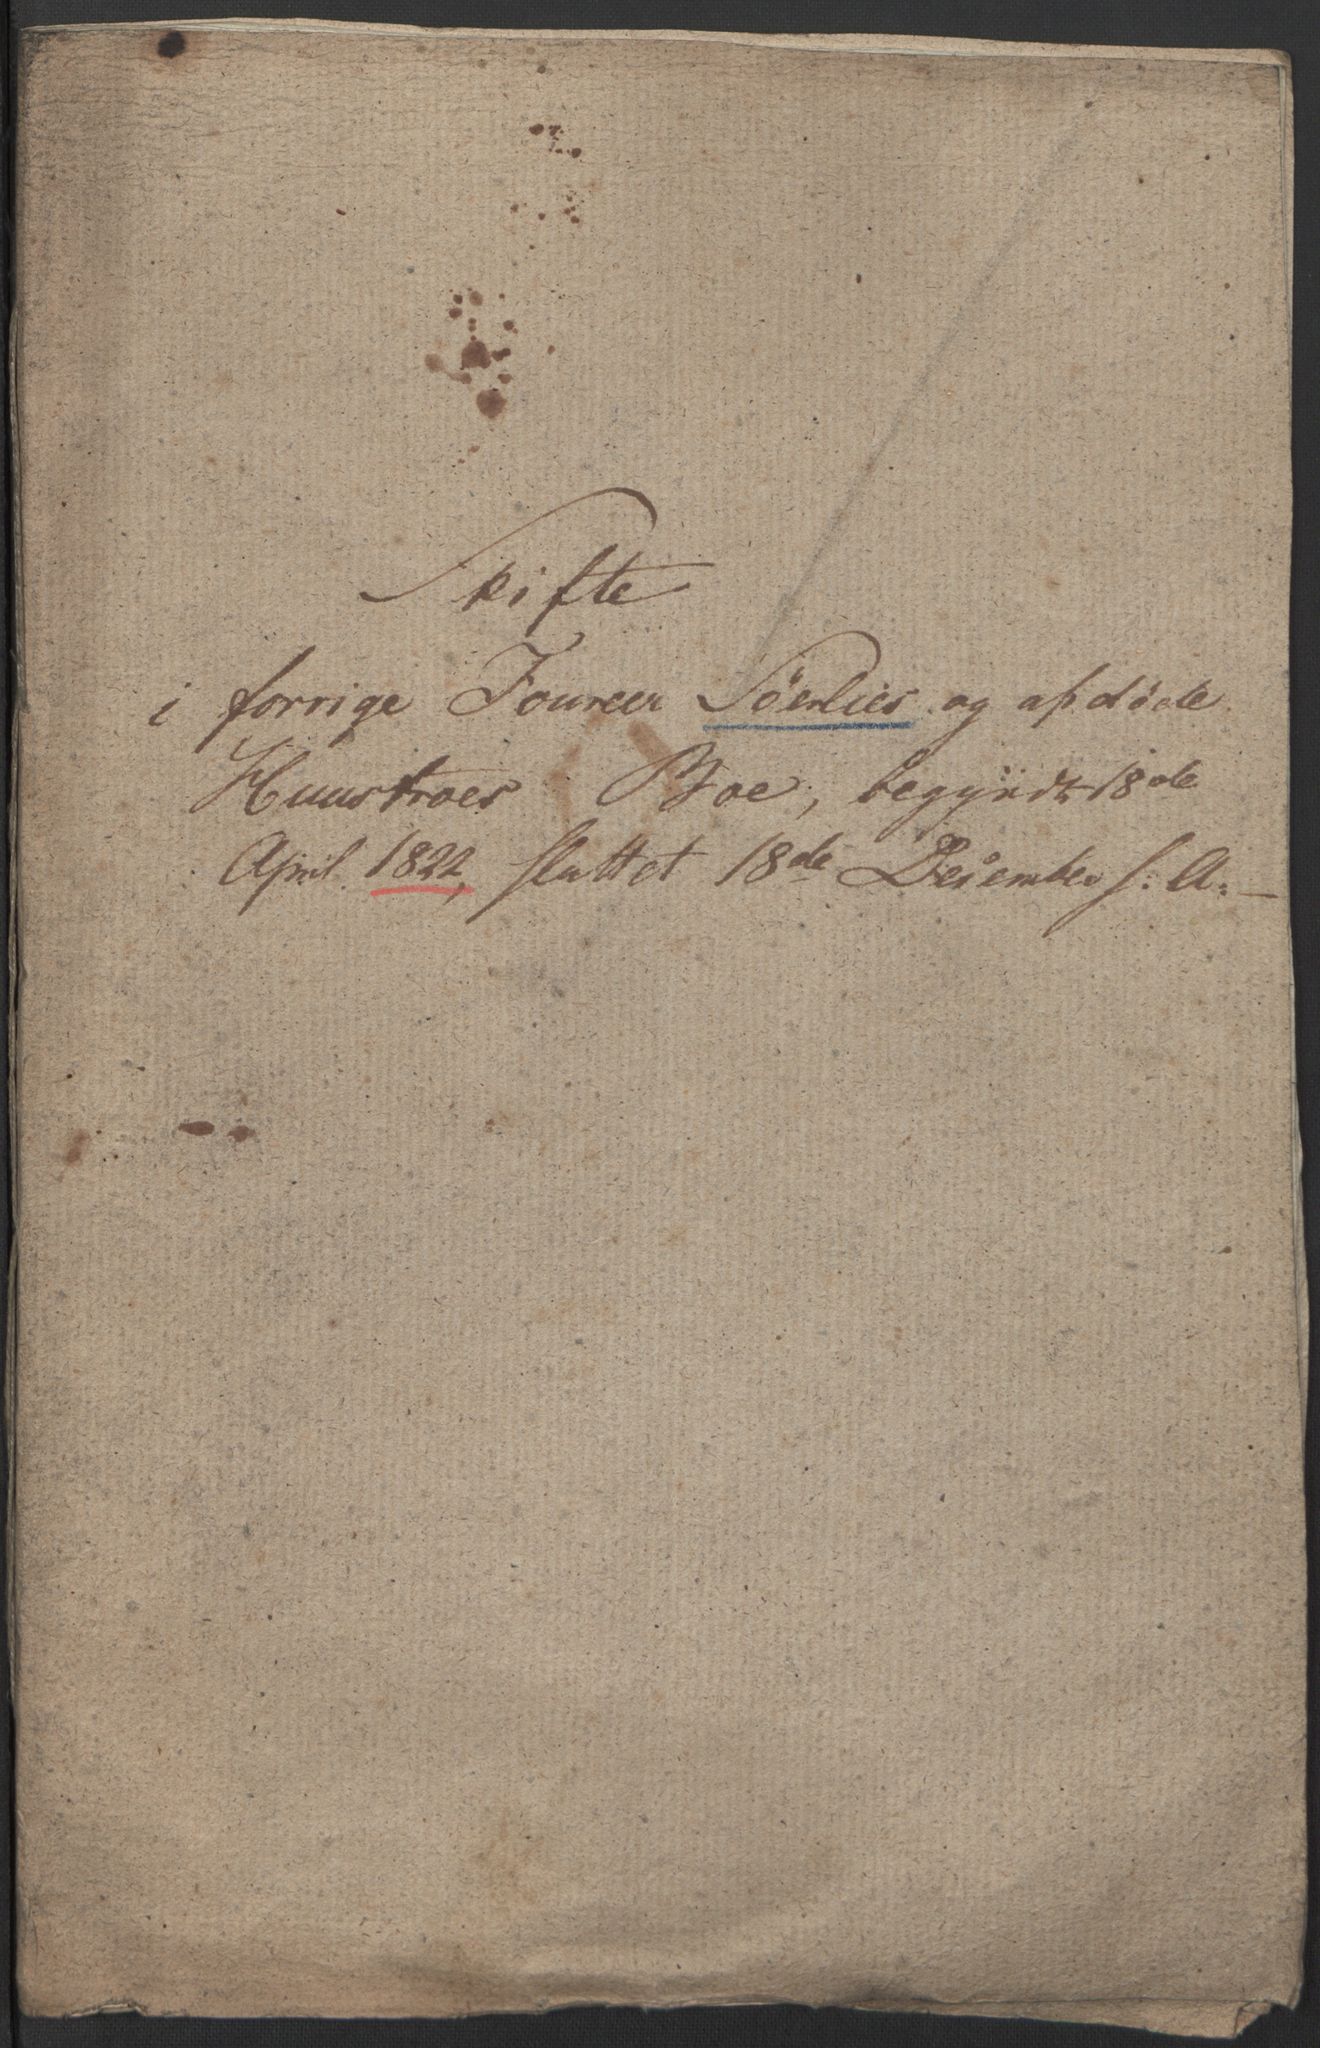 Skifte
i forrige Foureer Söerlies og afdøde
Huustroes Boe, begyndt 18de
April 1822, sluttet 18de December s: A: